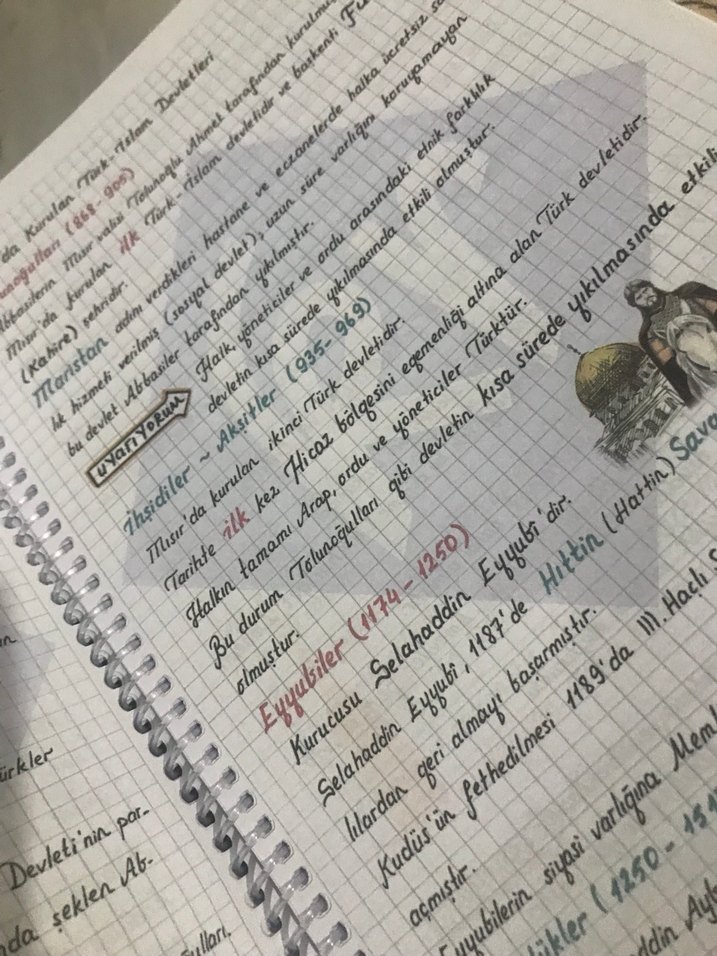 da Kurulan Türk-İslam Devletleri
unoğulları (868-905)
Abbasilerin Mısır valisi Tolunoğlu Ahmet tarafından kurulmuş
Mısır'da kurulan ilk Türk-İslam devletidir ve başkenti Fu
(Kahire) şehridir.
Maristan adını verdikleri hastane ve eczanelerde halka ücretsiz sa
lık hizmeti verilmiş (sosyal devlet), uzun süre varlığını koruyamayan
bu devlet Abbasiler tarafından yıkılmıştır.
UYARIYORUM
Halk, yöneticiler ve ordu arasındaki etnik farklılık
devletin kısa sürede yıkılmasında etkili olmuştur.
İhşidiler ~ Akşitler (935-969)
Mısır'da kurulan ikinci Türk devletidir.
Tarihte ilk kez Hicaz bölgesini egemenliği altına alan Türk devletidir.
Halkın tamamı Arap, ordu ve yöneticiler Türktür.
Bu durum Tolunoğulları gibi devletin kısa sürede yıkılmasında etkili
olmuştur.
Eyyubiler (1174-1250)
Kurucusu Selahaddin Eyyubi'dir.
Selahaddin Eyyubî, 1187'de Hıttin (Hattin) Sava
lılardan geri almayı başarmıştır.
Kudüs'ün fethedilmesi 1189'da III. Haçlı S
açmıştır.
Eyyubilerin siyasi varlığına Meml
lükler (1250-151
ddin Ayb
ürkler
Devleti'nin par-
nda şeklen Ab-
ulları,